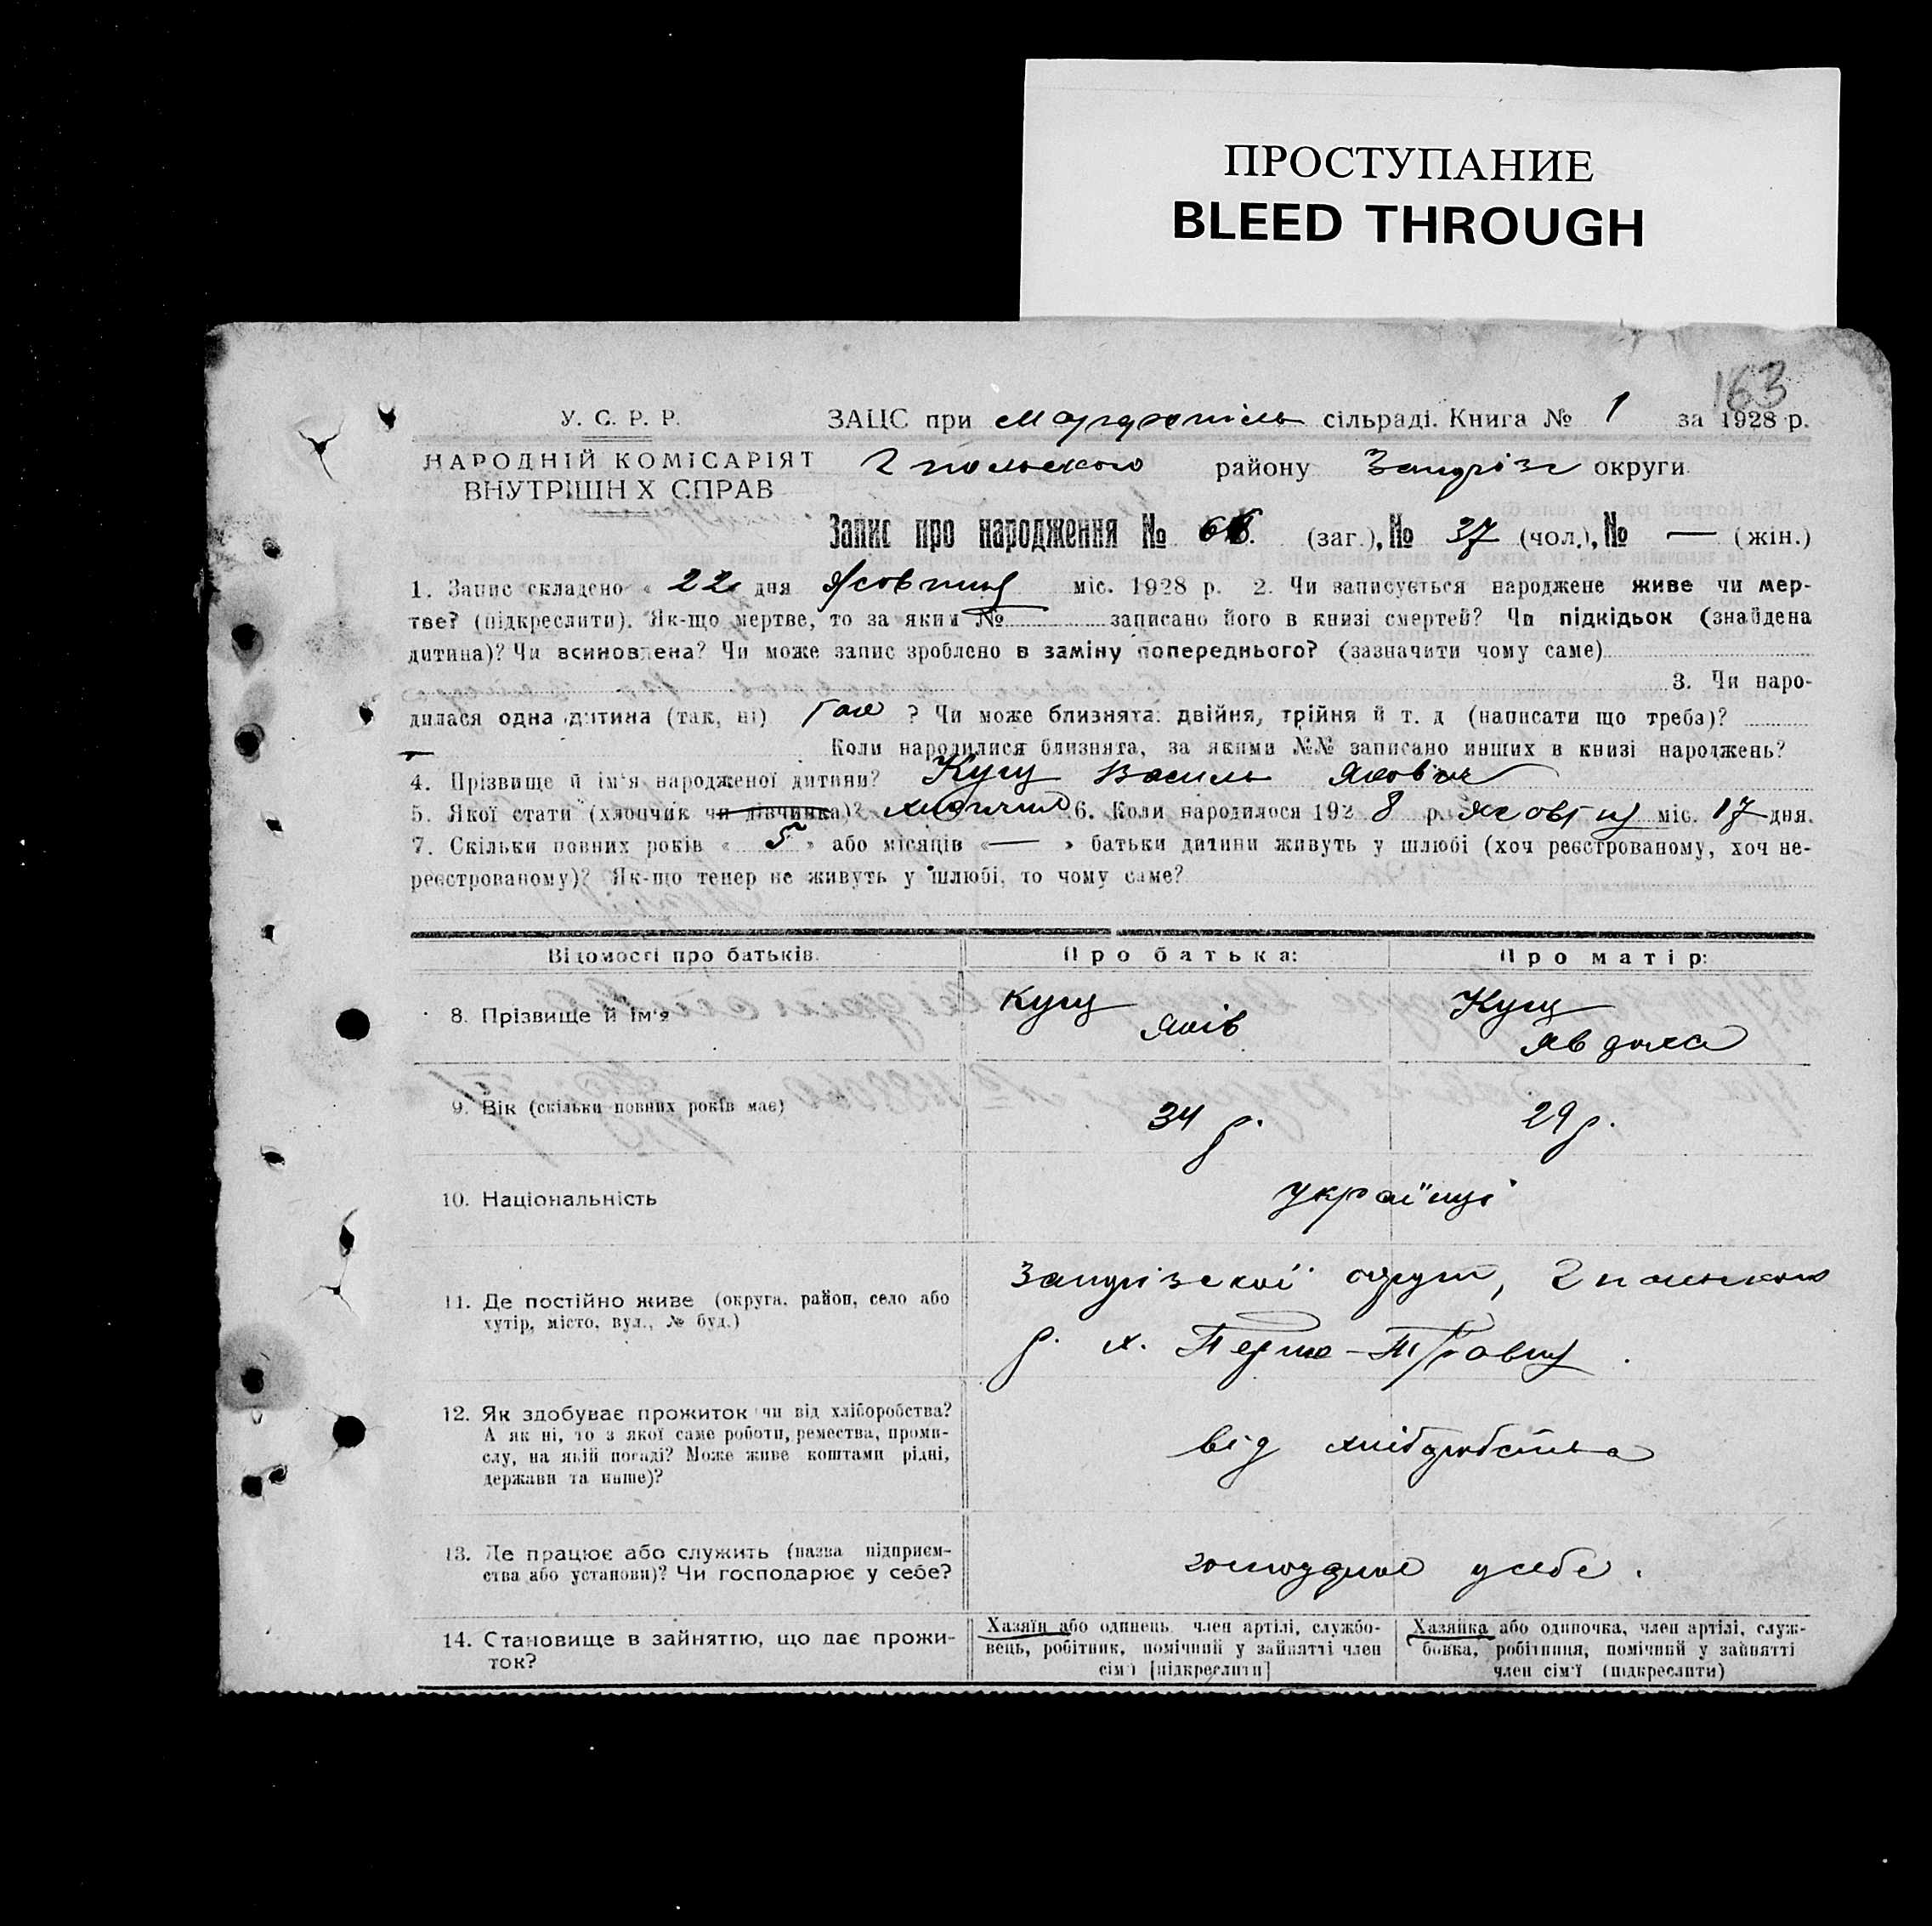 ПРОСТУПАНИЕ
BLEED THROUGH
163
У. С. Р. Р.
ЗАЦС при сільраді. Книга № 1 за 1928 р.
НАРОДНІЙ КОМІСАРІЯТ
ВНУТРІШН Х СПРАВ
району округи
Запис про народження № (заг.), № 37 (чол.), № — (жін.)
1. Запис складено « 22 дня Жовтня міс. 1928 р. 2. Чи записується народжене живе чи мер-
тве? (підкреслити). Як-що мертве, то за яким № записано його в книзі смертей? Чи підкідьок (знайдена
дитина)? Чи всиновлена? Чи може запис зроблено в заміну попереднього? (зазначити чому саме)
3. Чи наро-
дилася одна дитина (так, ні) так ? Чи може близнята: двійня, трійня й т. д (написати що треба)?
— Коли народилися близнята, за якими №№ записано инших в книзі народжень?
4. Прізвище й ім'я народженої дитини? Кущ Василь Якович
5. Якої стати (хлопчик чи дівчинка)? хлопчик 6. Коли народилося 192 8 р. Жовтня міс. 17 дня.
7. Скільки повних років « 5 » або місяців « — » батьки дитини живуть у шлюбі (хоч реєстрованому, хоч не-
реєстрованому)? Як-що тепер не живуть у шлюбі, то чому саме?
Відомості про батьків. Про батька: Про матір:
8. Прізвище й ім'я Кущ Яків Кущ Явдоха
9. Вік (скільки повних років має) 34 р. 29 р.
10. Національність українці
11. Де постійно живе (округа, район, село або
хутір, місто, вул., № буд.)
Запорізської округи,
р. х. Першо-Травня.
12. Як здобуває прожиток чи від хліборобства?
А як ні, то з якої саме роботи, ремества, проми-
слу, на якій посаді? Може живе коштами рідні,
держави та инше)?
від хліборобства
13. Де працює або служить (назва підприєм-
ства або установи)? Чи господарює у себе?
господарює у себе.
14. Становище в зайняттю, що дає прожи-
ток?
Хазяїн або одинець, член артілі, службо-
вець, робітник, помічний у зайнятті член
сім'ї [підкреслити]
Хазяйка або одиночка, член артілі, служ-
бовка, робітниця, помічний у зайнятті
член сім'ї (підкреслити)